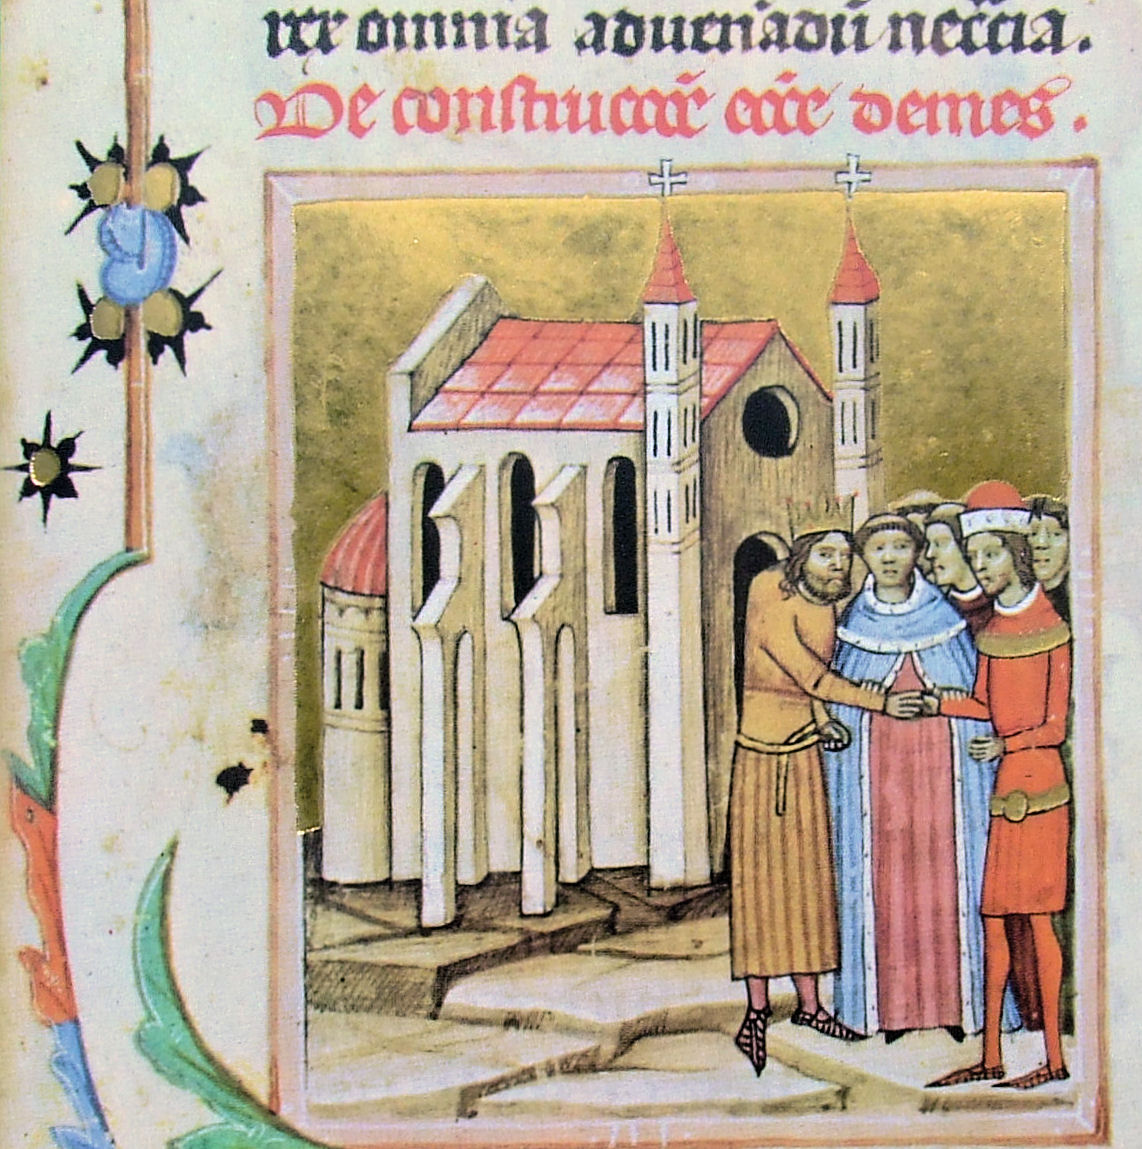 rex omnia adveniadū neccīa.
De construccōe eccē demes.